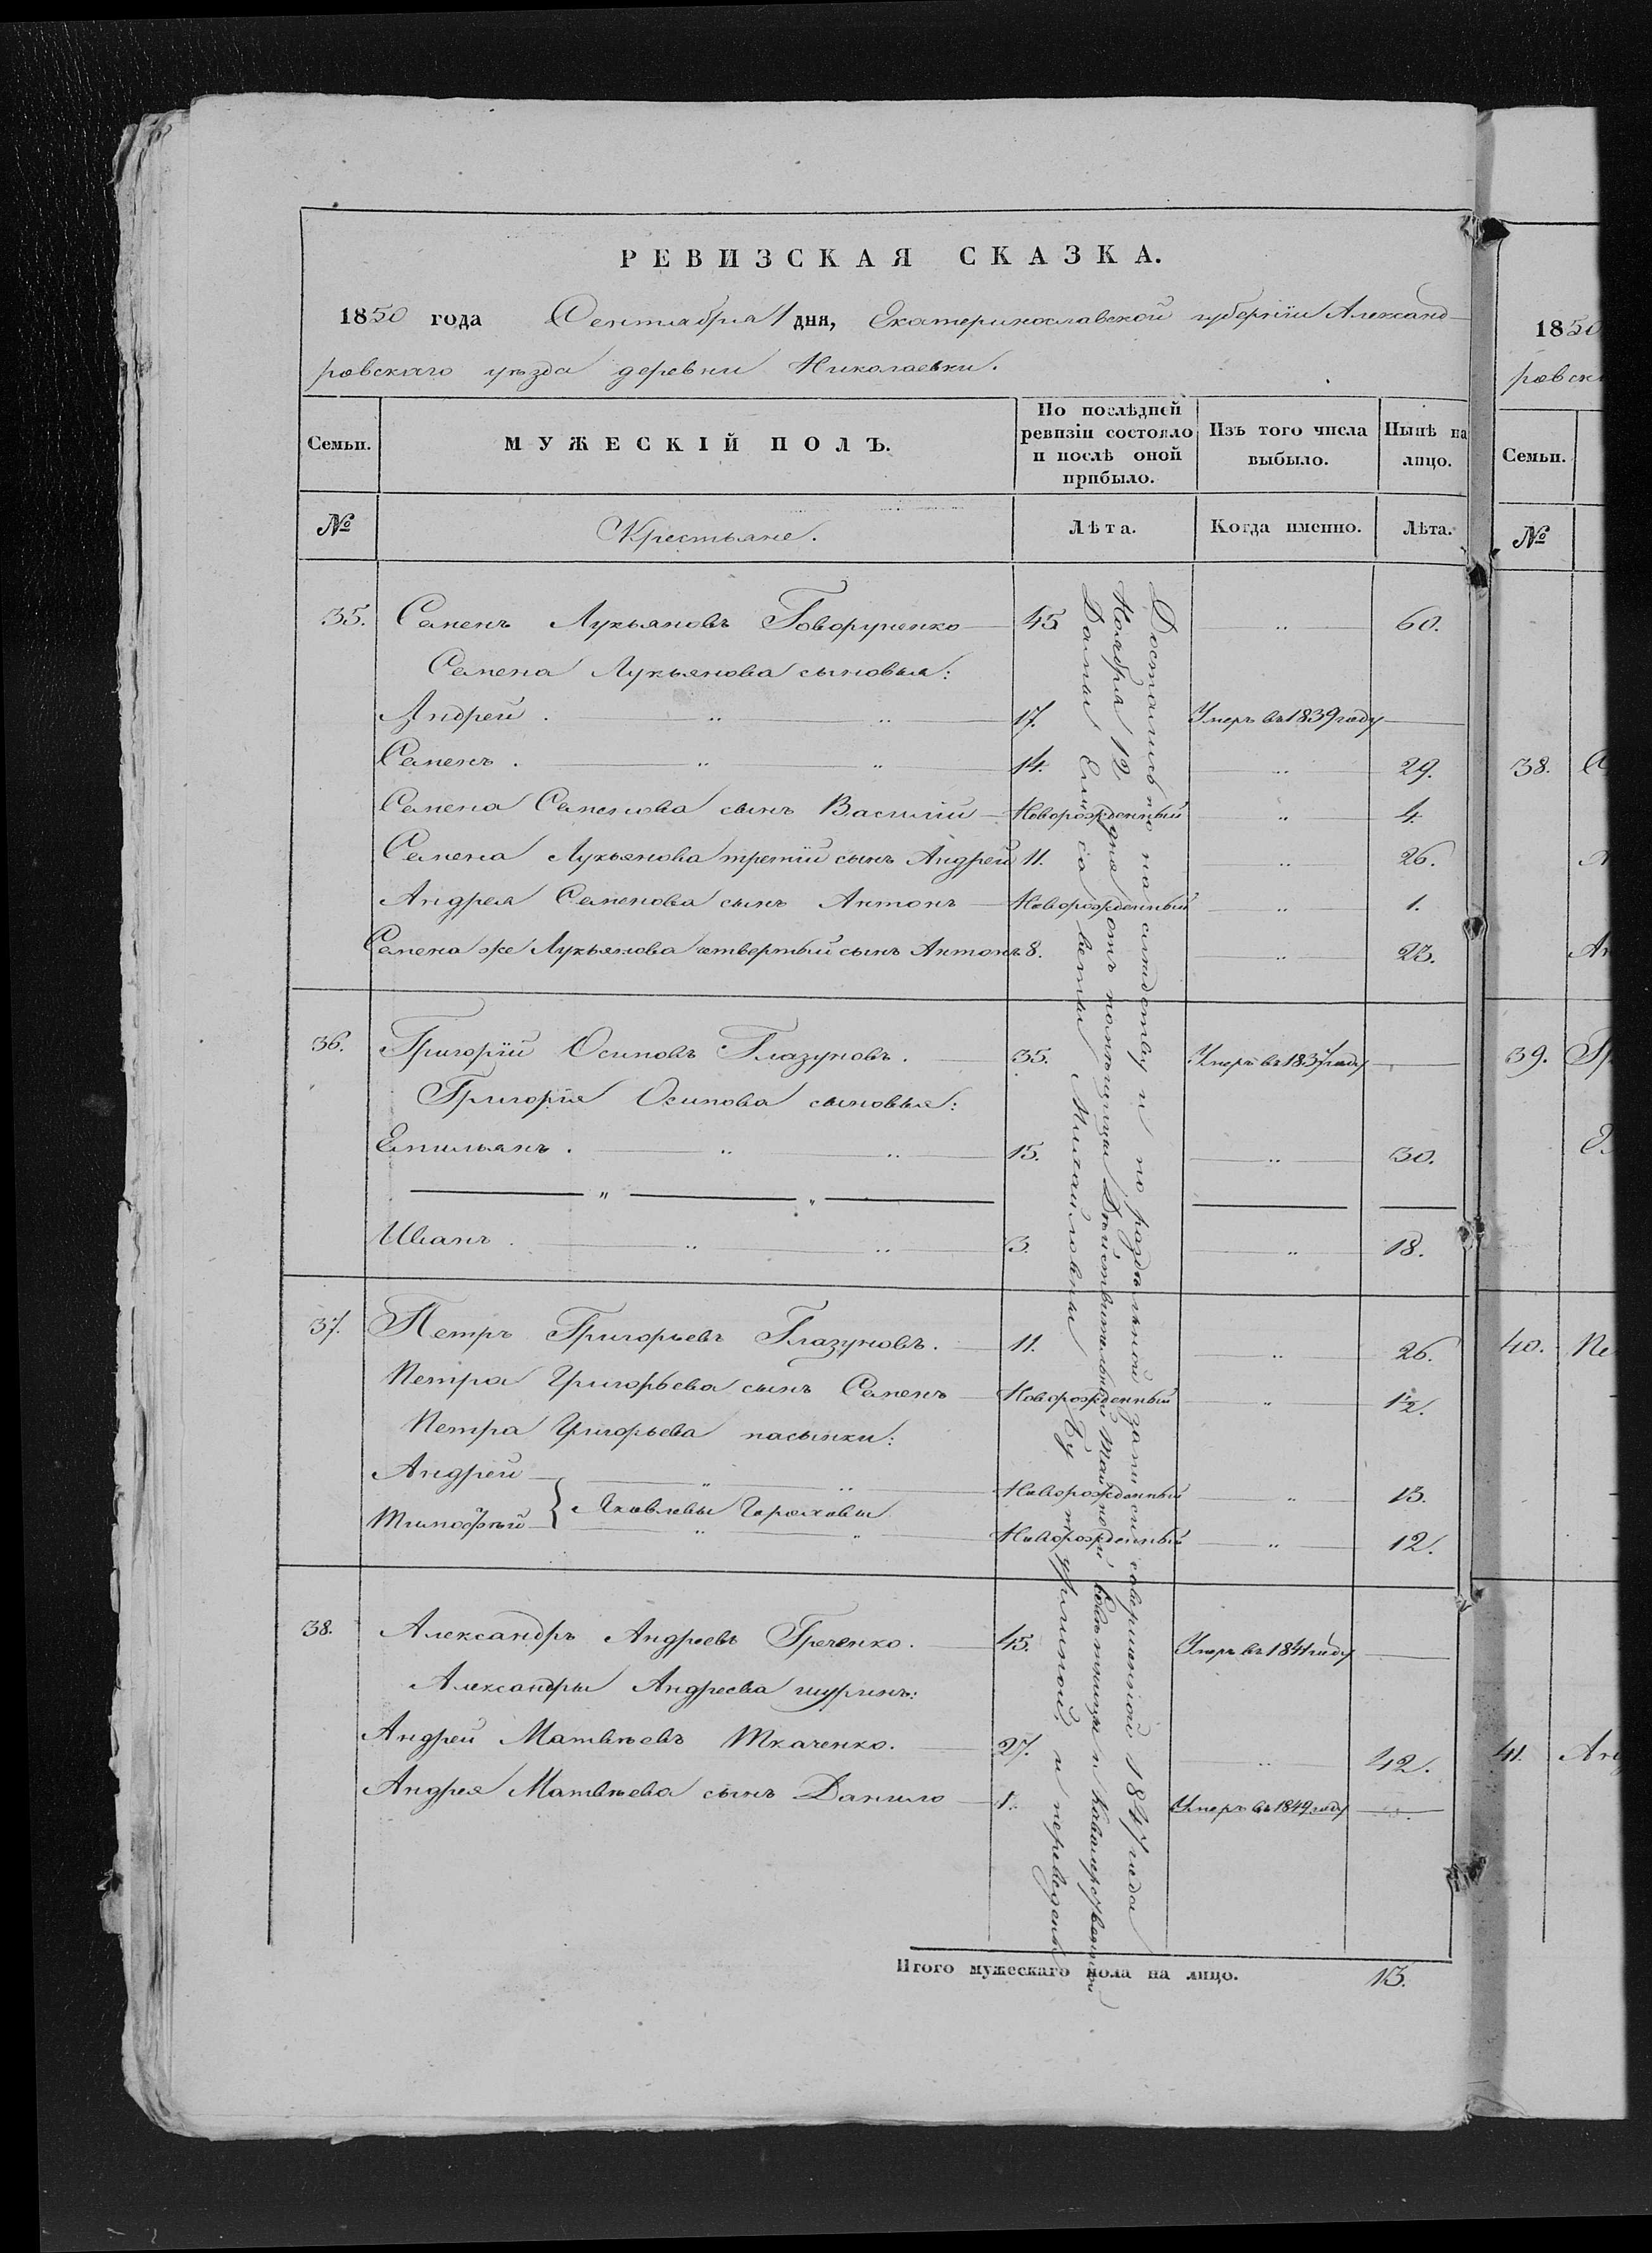 РЕВИЗСКАЯ СКАЗКА.
1850 года Сентября 1 дня, Екатеринославской губерніи Александ-
ровскаго уѣзда деревни Николаевки.
Семьи.
МУЖЕСКІЙ ПОЛЪ.
По послѣдней ревизіи состояло и послѣ оной прибыло.
Изъ того числа выбыло.
Нынѣ на лицо.
№ Крестьяне. Лѣта. Когда именно. Лѣта.
35. Семенъ Лукьяновъ 45 60.
Семена Лукьянова сыновья:
Андрей. 17. Умеръ въ 1839 году
Семенъ. 14. 29.
Семена Семенова сынъ Василій Новорожденный 4.
Семена Лукьянова третій сынъ Андрей 11. 26.
Андрея Семенова сынъ Антонъ Новорожденный 1.
Семена же Лукьянова четвертый сынъ Антонъ 8. 23.
36. Григорій Осиповъ Глазуновъ. 35. Умеръ въ 1837 году
Григорія Осипова сыновья:
Емильянъ. 15. 30.
Иванъ. 3 18.
37. Петръ Григорьевъ Глазуновъ. 11. 26.
Петра Григорьева сынъ Семенъ Новорожденный 1½.
Петра Григорьева пасынки:
Андрей Новорожденный 13.
Яковлевы Гороховы
Тимофѣй Новорожденный 12.
38. Александръ Андреевъ Греченко. 45. Умеръ въ 1841 году
Александры Андреева шуринъ:
Андрей Матвѣевъ Ткаченко. 27. 42.
Андрея Матвѣева сынъ Данило 1. Умеръ въ 1849 году
Достались по наслѣдству и по раздѣльной записи совершенной 1847 года
Ноября 12 дня отъ помѣщицы Дѣйствительной Тайной Совѣтницы и Кавалерственной
Дамы Елисаветы Михайловны и переведены
Итого мужескаго пола на лицо. 13.
1850
ровск
Семьи.
№
38.
39. Гр
40. Пе
41. Анд